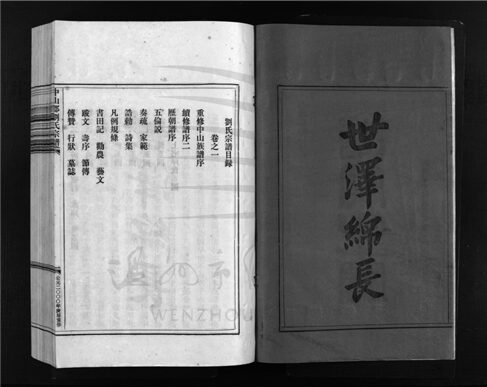 世澤綿長
劉氏宗譜目錄
卷之一
重修中山族譜序
續修譜序二
歷朝譜序
五倫說
奏疏 家範
誥勅 詩集
凡例規條
書田記 勸農 藝文
跋文 壽序 節傳
傳贊 行狀 墓誌
中山郡劉氏宗譜
WENZHOU